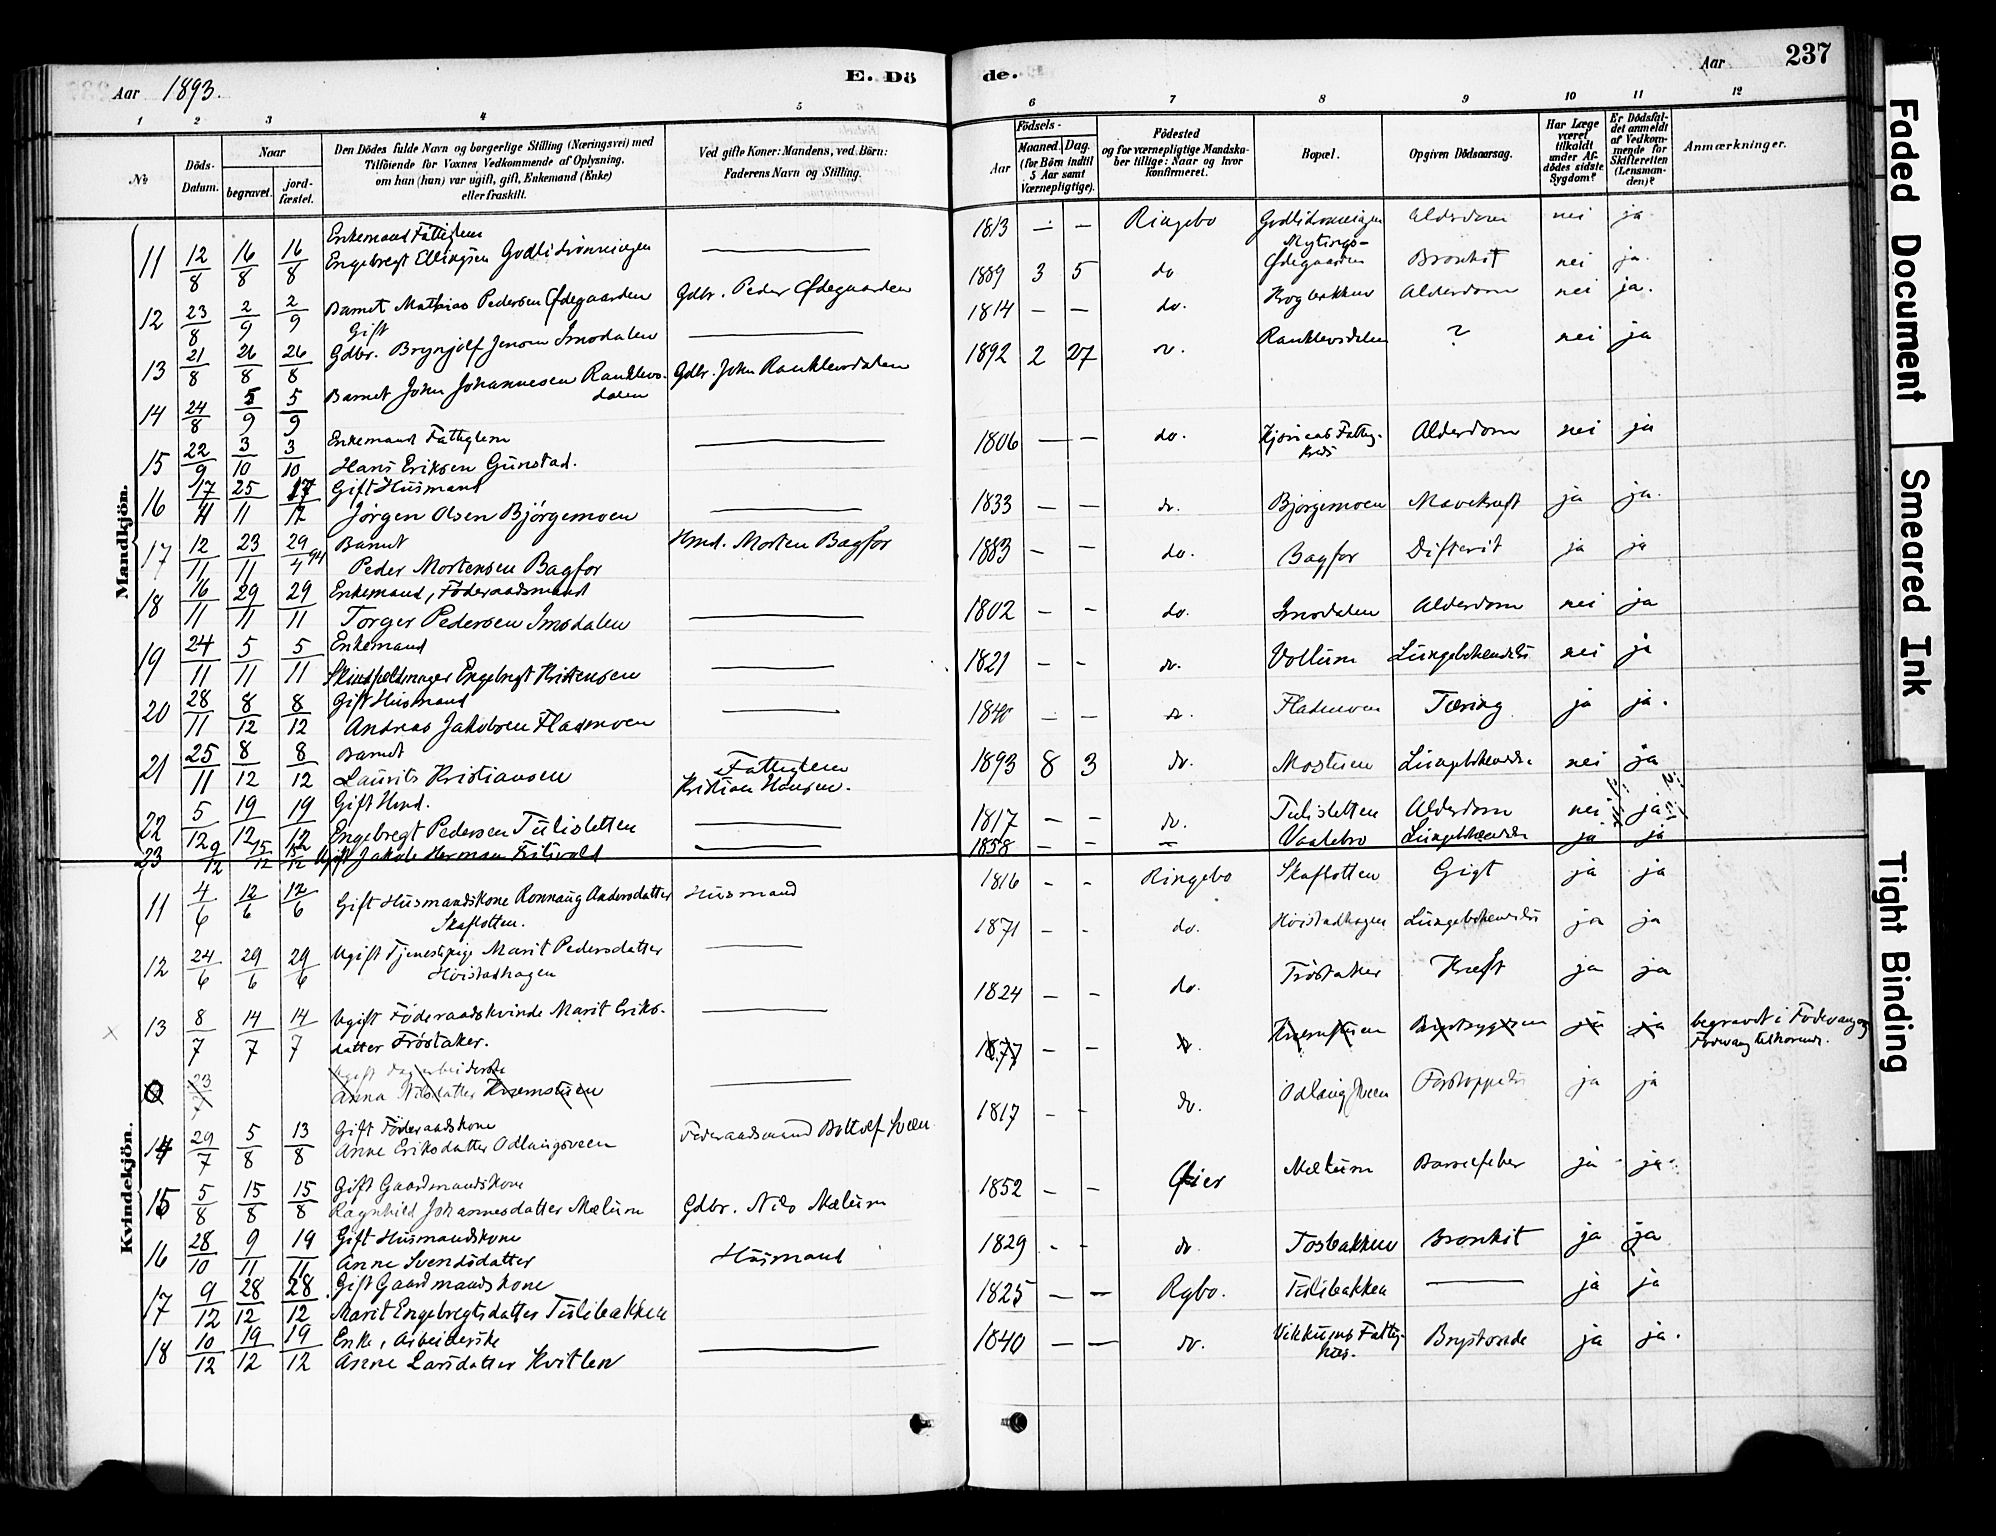 Aar 1893. E. Dö de. Aar 237
1 2 3 4 5 6 7 8 9 10 11 12
No Döds-Datum. Naar begravet. jordfæstet. Den Dödes fulde Navn og borgerlige Stilling (Næringsvei) med Tilföiende for Voxnes Vedkommende af Oplysning, om han (hun) var ugift, gift, Enkemand (Enke) eller fraskilt. Ved gifte Koner: Mandens, ved Börn: Faderens Navn og Stilling. Födsels- Aar Maaned. Dag. (for Börn indtil 5 Aar samt Værnepligtige). Födested og for værnepligtige Mandskaber tillige: Naar og hvor konfirmeret. Bopæl. Opgiven Dödsaarsag. Har Læge været tilkaldt under Afdödes sidste Sygdom? Er Dödsfaldet anmeldt af Vedkommende for Skifteretten (Lensmanden)? Anmærkninger.
Mandkjön.
11 12/8 16/8 16/8 Enkemand Fattiglem Engebregt Ellingsen Godlidsrønningen — 1813 — — Ringebo Godlidsrønningen Alderdom nei ja
12 23/8 2/9 2/9 Barnet Mathias Pedersen Ødegaarden Gdbr. Peder Ødegaarden 1889 3 5 do Mytings-Ødegaarden Bronkit nei ja.
13 21/8 26/8 26/8 Gift Gdbr. Brynjolf Jensen Imsdalen — 1814 — — do. Alderdom nei ja.
14 24/8 5/9 5/9 Barnet John Johannesen Ranklevsdalen Gdbr. John Ranklevsdalen 1892 2 27 do. Ranklevsdalen ? nei ja
15 22/9 3/10 3/10 Enkemand Fattiglem Hans Eriksen Gunstad. — 1806 — — do. Alderdom nei ja
16 17/11 25/11 17/12 Gift Husmand Jørgen Olsen Bjørgemoen — 1833 — — do. Bjørgemoen Mavekræft ja ja.
17 12/11 23/11 29/4 94 Barnet Peder Mortensen Bagfor Hmd. Morten Bagfor 1883 — — do. Bagfor Difterit ja ja
18 16/11 29/11 29/11 Enkemand, Föderaadsmand Torger Pedersen Imsdalen — 1802 — — do. Imsdalen Alderdom nei ja
19 24/11 5/11 5/11 Enkemand Skindfeldmager Engebregt Kristensen — 1821 — — do. Vollum Lungebetændelse nei ja
20 28/11 8/12 8/12 Gift Husmand Andreas Jakobsen Fladmoen — 1840 — — do. Fladmoen Tæring ja ja.
21 25/11 8/12 8/12 Barnet Laurits Kristiansen Fattiglem Kristian Hansen. 1893 8 3 do. Mostuen Lungebetændelse nei ja
22 5/12 19/12 19/12 Gift Hmd. Engebregt Pedersen Tulisletten — 1817 — — do. Tulisletten Alderdom nei ja
23 9/12 15/12 15/12 Ugift Jakob Herman — 1858 — — — Vaalebro Lungebetændelse ja ja
Kvindekjön.
11 4/6 12/6 12/6 Gift Husmandskone Ronnaug Andersdatter Skaflotten. Husmand 1816 - - Ringebo Skaflotten Gigt ja ja
12 24/6 29/6 29/6 Ugift Tjenestpige Marit Pedersdatter Høistadhagen — 1871 - - do. Høistadhagen Lungebetændelse ja ja
13 8/7 14/7 14/7 Ugift Föderaadskvinde Marit Eriksdatter Frøstaker. — 1824 — - do. Frøstaker Kræft ja ja
23/7 Ugift dagarbeiderske Anna Nilsdatter Kræmstuen — 1877 — - do. Kræmstuen Brystsygdom ja ja begravet i Fodvang
14 29/7 5/8 13/8 Gift Föderaadskone Anne Eriksdatter Odlaugsveen Föderaadsmand Bottolf Sveen 1817 - - do. Odlaug Sveen Forstoppelse ja ja
15 5/8 15/8 15/8 Gift Gaardmandskone Ragnhild Johannesdatter Mælum Gdbr. Nils Mælum 1852 — - Øier Mælum Barselfeber ja - ja -
16 28/10 9/11 19/11 Gift Husmandskone Anne Svendsdatter Husmand 1829 - - do. Tosbakken Bronkit ja ja
17 9/12 28/12 28/12 Gift Gaardmandskone Marit Engebregtsdatter Tulibakken 1825 — — Rgbo. Tulibakken — ja ja
18 10/12 19/12 19/12 Enke, Arbeiderske Anne Larsdatter Kvitlen — 1840 — — do. Brystonde ja ja.
Faded Document
Smeared Ink
Tight Binding